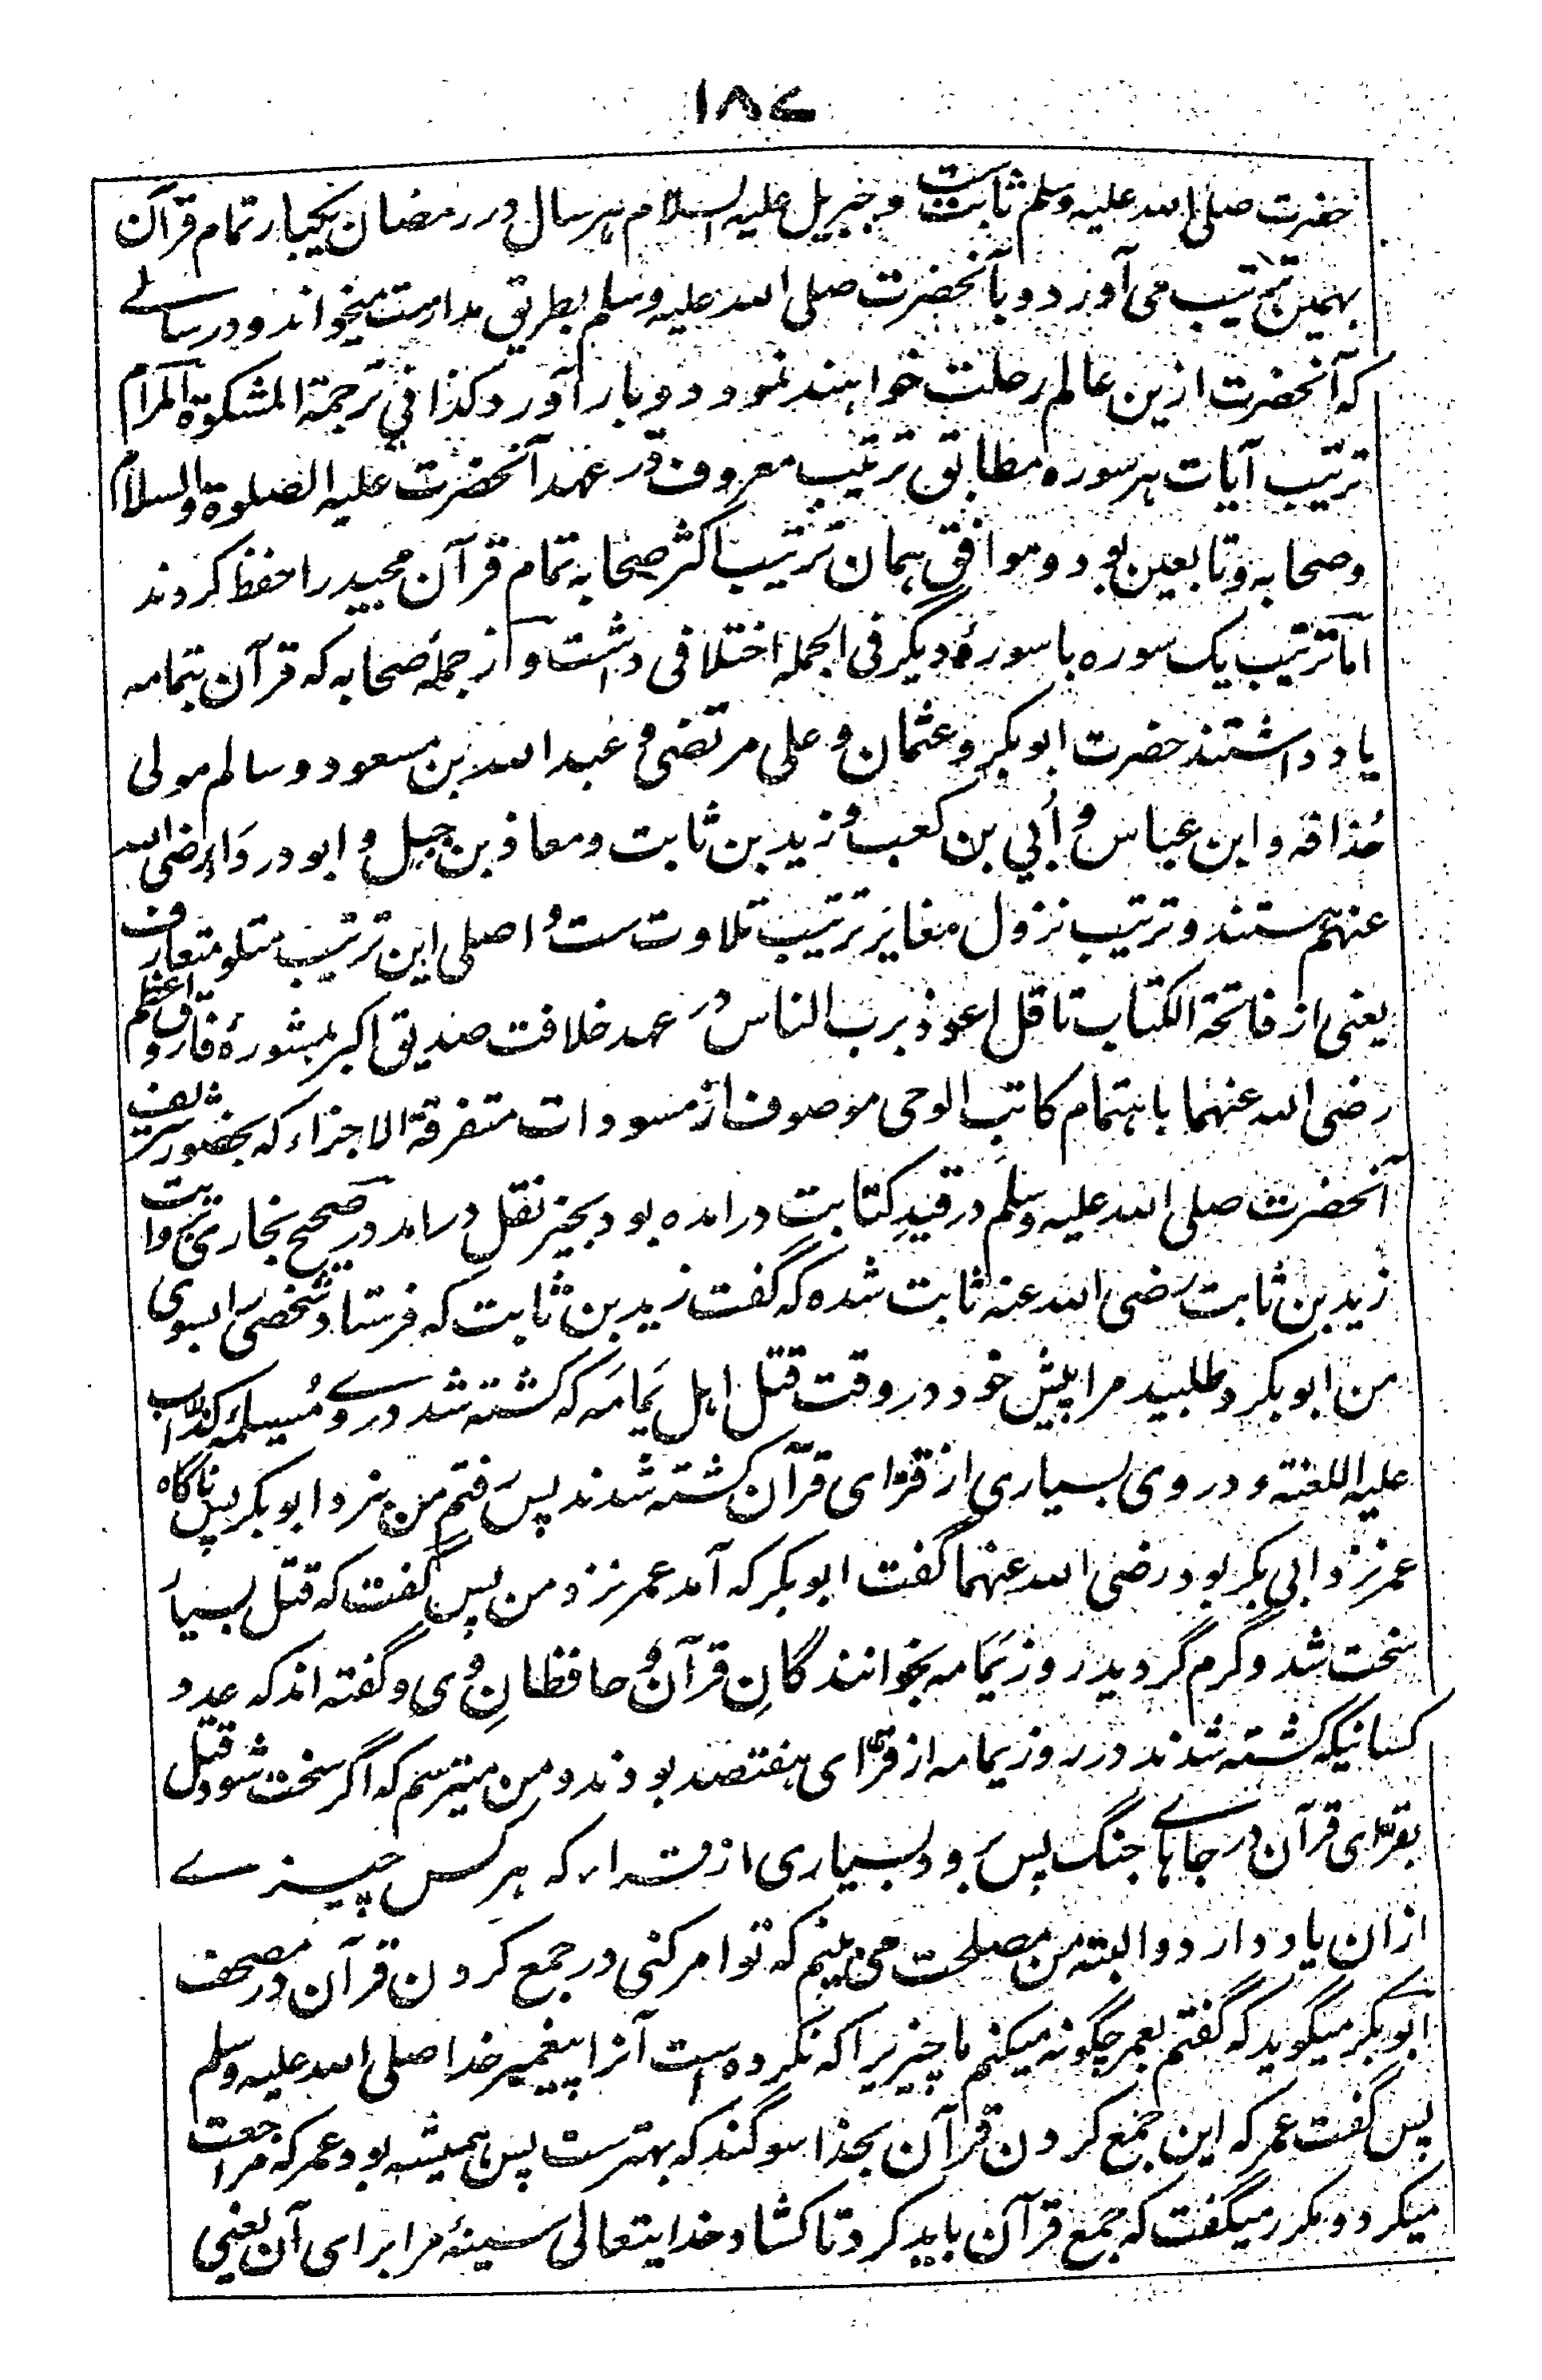 ۱۸۷
حضرت صلی الله علیه وسلم ثابت است و جبریل علیه السلام هر سال در رمضان یکبار تمام قرآن
بهمین ترتیب می آورد و بآنحضرت صلی الله علیه وسلم بطریق مدارست میخواند و در سالے
که آنحضرت ازین عالم رحلت خواهند نمود دوبار آورد کذا فی ترجمة المشکوة المرام
ترتیب آیات هر سوره مطابق ترتیب معروف در عهد آنحضرت علیه الصلوة والسلام
و صحابه و تابعین بود و موافق همان ترتیب اکثر صحابه تمام قرآن مجید را حفظ کردند
اما ترتیب یک سوره با سورهٔ دیگر فی الجمله اختلافی داشت و از جملهٔ صحابه که قرآن بتمامه
یاد داشتند حضرت ابوبکر و عثمان و علی مرتضی و عبد الله بن مسعود و سالم مولی
حُذافه و ابن عباس و اُبي بن کعب و زید بن ثابت و معاذ بن جبل و ابو درداء رضی الله
عنهم هستند و ترتیب نزول مغایر ترتیب تلاوت ست و اصلی این ترتیب متلو متعارف
یعنی از فاتحة الکتاب تا قل اعوذ برب الناس در عهد خلافت صدیق اکبر بمشورهٔ فاروق اعظم
رضی الله عنهما باهتمام کاتب الوحی موصوف از مسودات متفرقة الاجزاء که بحضور شریف
آنحضرت صلی الله علیه وسلم در قیدِ کتابت درآمده بود بحیز نقل درامد در صحیح بخاری بروایت
زید بن ثابت رضی الله عنه ثابت شده که گفت زید بن ثابت که فرستاد شخصی را بسوی
من ابوبکر و طلبید مرا پیش خود در وقت قتل اهل یَمامَه که کشته شد در وے مُسیلمهٔ کذاب
علیه اللعنة و در وی بسیاری از قرّای قرآن کشته شدند پس رفتم من نزد ابوبکر پس ناگاه
عمر نزد ابی بکر بود رضی الله عنهما گفت ابوبکر که آمد عمر نزد من پس گفت که قتل بسیار
سخت شد و گرم گردید روز یَمامه بخوانندگانِ قرآن و حافظانِ وی و گفته اند که عدد
کسانیکه کشته شدند در روز یمامه از قرّای هفتصد بودند و من میترسم که اگر سخت شود قتل
بقرّای قرآن در جاهاے جنگ پس برود بسیاری از قراء که هر کس چیزے
ازان یاد دارد و البته من مصلحت می بینم که تو امر کنی در جمع کردن قرآن در مصحف
ابوبکر میگوید که گفتم بعمر چگونه میکنم ما چیزیرا که نکرده است آنرا پیغمبر خدا صلی الله علیه وسلم
پس گفت عمر که این جمع کردن قرآن بخدا سوگند که بهترست پس همیشه بود عمر که مراجعت
میکرد و مکرر میگفت که جمع قرآن باید کرد تا کشاد خدایتعالی سینهٔ مرا برای آن یعنی